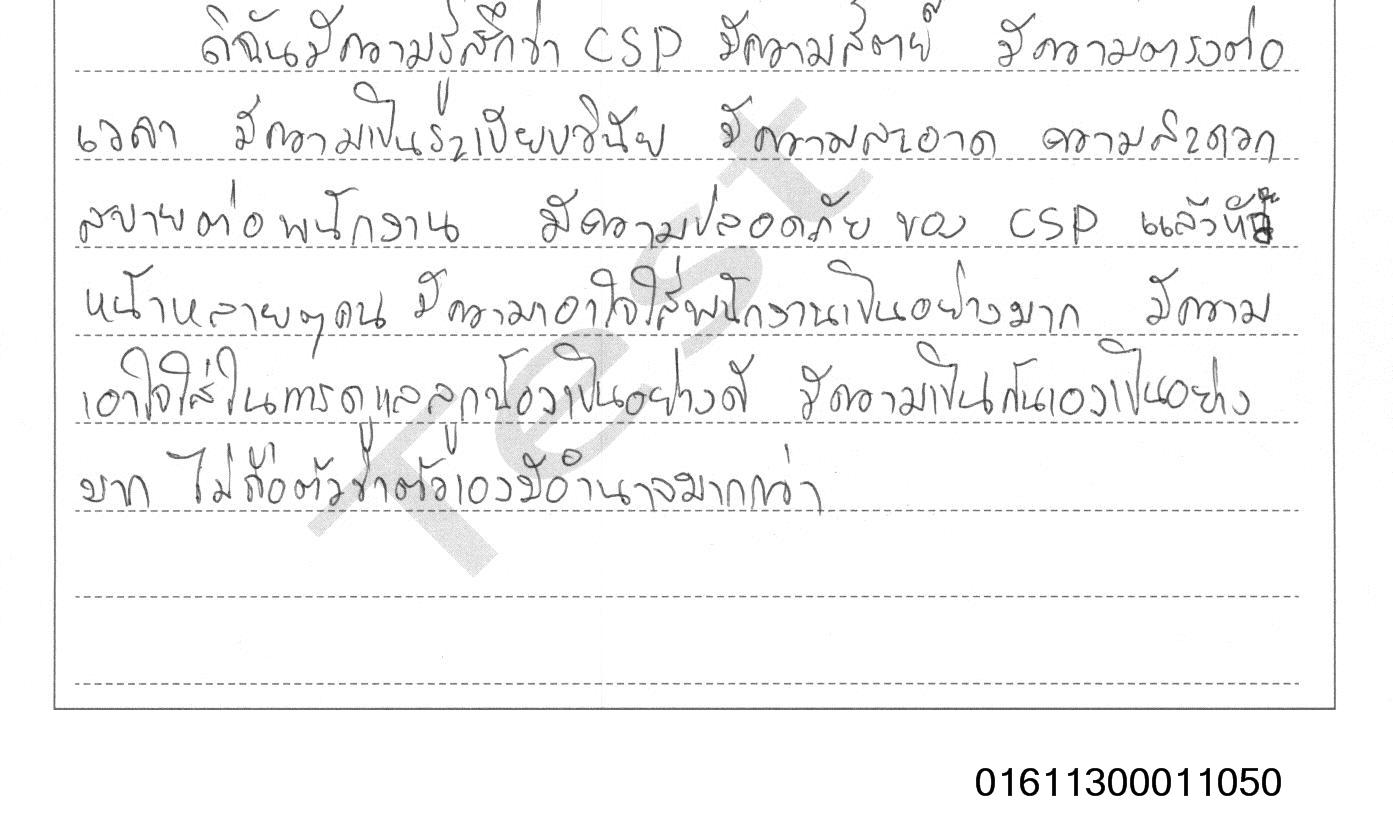 ดิฉันมีความรู้สึกว่า CSP มีความสัตย์ มีความตรงต่อ
เวลา มีความเป็นระเบียบวินัย มีความสะอาด ความสะดวก
สบายต่อพนักงาน มีความปลอดภัย ของ CSP แล้วหัว
หน้าหลายๆคน มีความเอาใจใส่พนักงานเป็นอย่างมาก มีความ
เอาใจใส่ในการดูแลลูกน้องเป็นอย่างดี มีความเป็นกันเองเป็นอย่าง
มาก ไม่ถือตัวว่าตัวเองมีอำนาจมากกว่า
Test
01611300011050